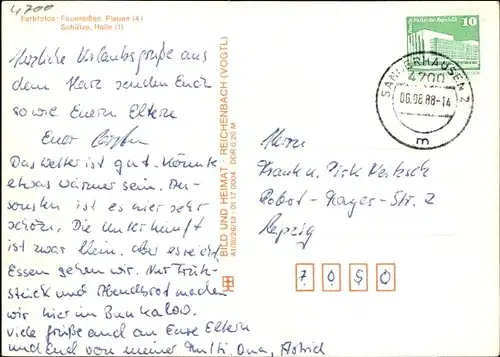 4700
Farbfotos: Feuereißen, Plauen (4)
Schütze, Halle (1)
Herzliche Urlaubsgrüße aus
dem Harz senden Euch
sowie Euern Eltern
Euer
Das Wetter ist gut. Könnte
etwas wärmer sein. An-
sonsten ist es hier sehr
schön. Die Unterkunft
ist zwar klein. Aber es reicht.
Essen gehen wir. Nur Früh-
stück und Abendbrot machen
wir hier im Bunkalow.
Viele Grüße auch an Eure Eltern
und Euch von meiner Mutti, Oma, Astrid
BILD UND HEIMAT REICHENBACH (VOGTL)
A1/III/26/13 01 17 0004 DDR 0,20 M
10
SANGERHAUSEN 2
4700
06.08.88-14
m
Herrn
Frank u. Dirk
Robot-Mayer-Str. 2
Leipzig
7 0 5 0